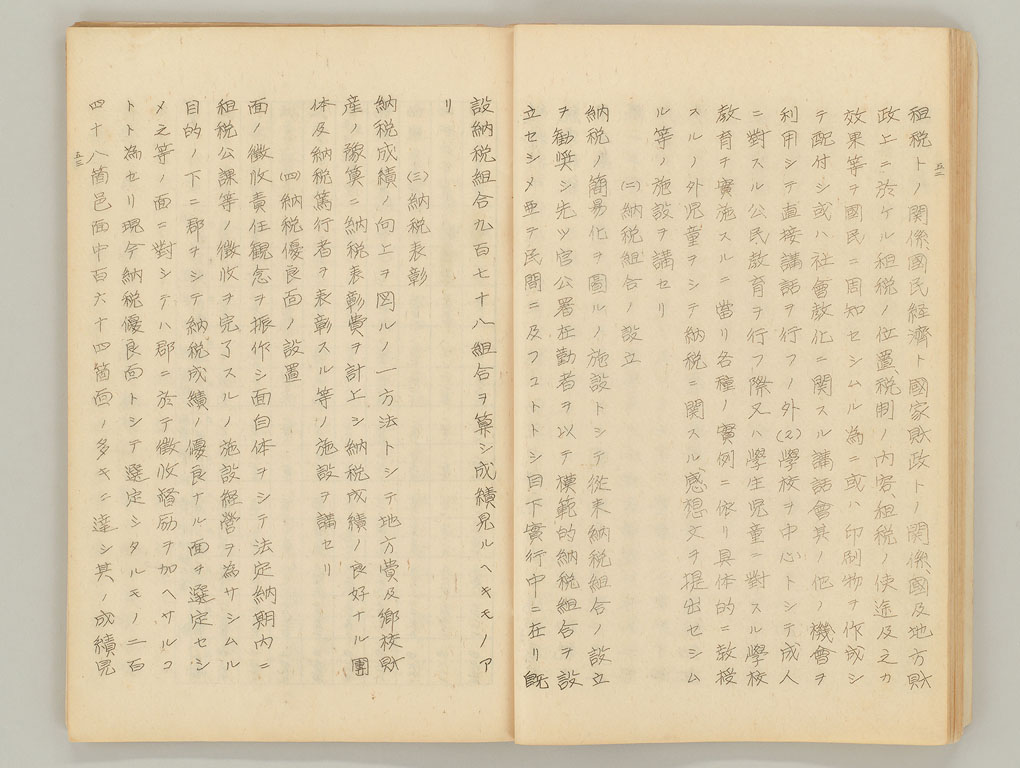 租税トノ關係、國民経濟ト國家財政トノ關係、國及地方財
政上ニ於ケル租税ノ位置、税制ノ内容、租税ノ使途及之カ
效果等ヲ國民ニ周知セシムル為ニ或ハ印刷物ヲ作成シ
テ配付シ或ハ社會教化ニ関スル講話會其ノ他ノ機會ヲ
利用シテ直接講話ヲ行フノ外(2)學校ヲ中心トシテ成人
ニ對スル公民教育ヲ行フ際又ハ學生児童ニ對スル學校
教育ヲ實施スルニ當リ各種ノ實例ニ依リ具体的ニ教授
スルノ外児童ヲシテ納税ニ関スル感想文ヲ提出セシム
ル等ノ施設ヲ講セリ
(二)納税組合ノ設立
納税ノ簡易化ヲ圖ルノ施設トシテ從来納税組合ノ設立
ヲ勧奨シ先ツ官公署在勤者ヲ以テ模範的納税組合ヲ設
立セシメ亜テ民間ニ及フコトトシ目下實行中ニ在リ既
五二
設納税組合九百七十八組合ヲ算シ成績見ルヘキモノア
リ
(三)納税表彰
納税成績ノ向上ヲ図ルノ一方法トシテ地方費及郷校財
産ノ豫算ニ納税表彰費ヲ計上シ納税成績ノ良好ナル團
体及納税篤行者ヲ表彰スル等ノ施設ヲ講セリ
(四)納税優良面ノ設置
面ノ徴收責任観念ヲ振作シ面自体ヲシテ法定納期内ニ
租税公課等ノ徴收ヲ完了スルノ施設経營ヲ為サシムル
目的ノ下ニ郡ヲシテ納税成績ノ優良ナル面ヲ選定セシ
メ之等ノ面ニ對シテハ郡ニ於テ徴收督励ヲ加ヘサルコ
トト為セリ現今納税優良面トシテ選定シタルモノ二百
四十八箇邑面中百六十四箇面ノ多キニ達シ其ノ成績見
五三